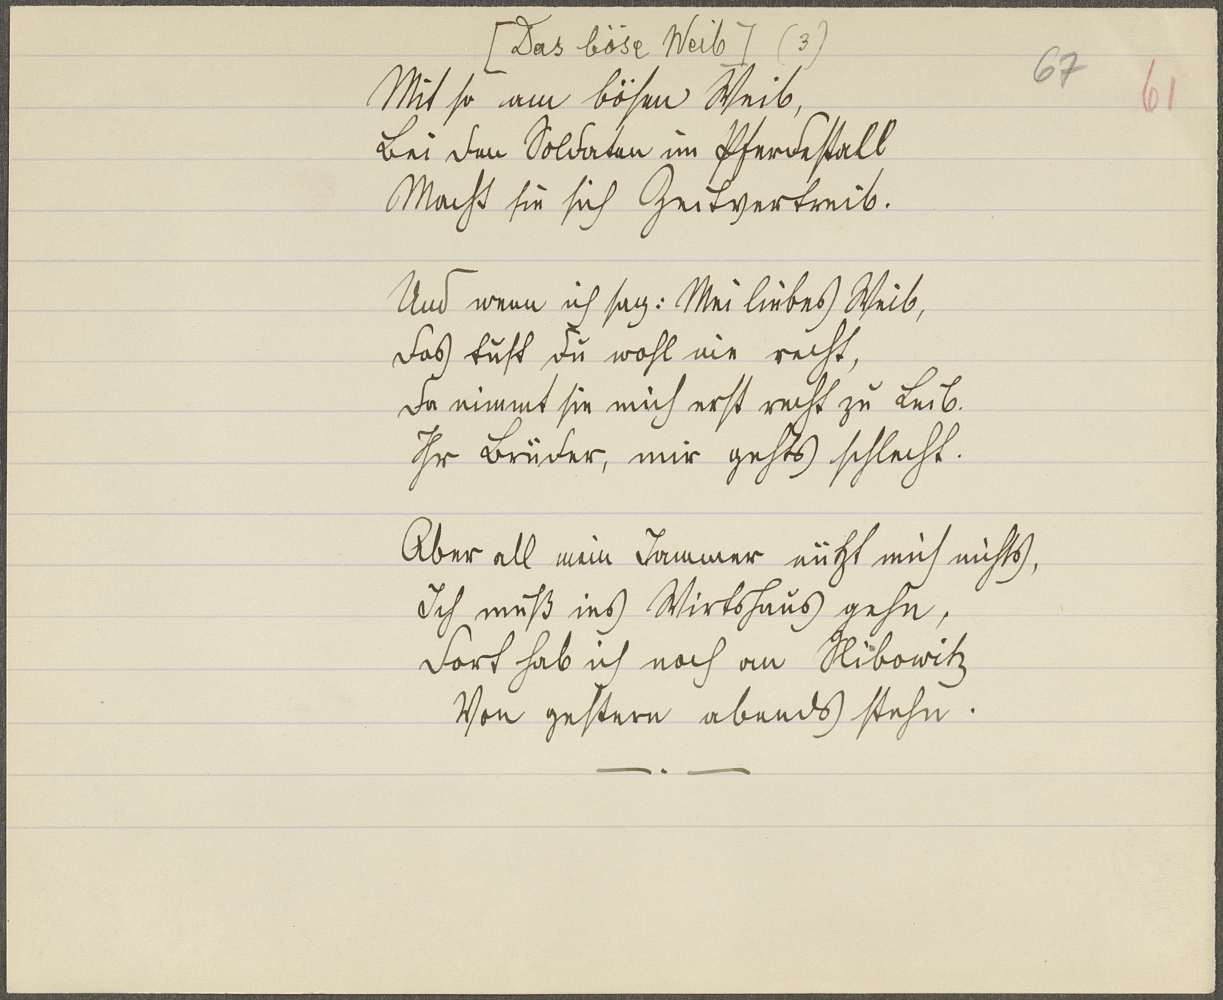 [Das böse Weib] (3)
67
61
Mit so am bösen Weib,
Bei den Soldaten im Pferdestall
Macht sie sich Zeitvertreib.
Und wenn ich sag: Mei liebes Weib,
das tust du wohl nie recht,
Da nimmt sie mich erst recht zu Leib.
Ihr Brüder, mir gehts schlecht.
Aber all mein Jammer nützt mich nichts,
Ich muß ins Wirtshaus gehn,
Dort hab ich noch an Slibowitz
Von gestern abends stehn.